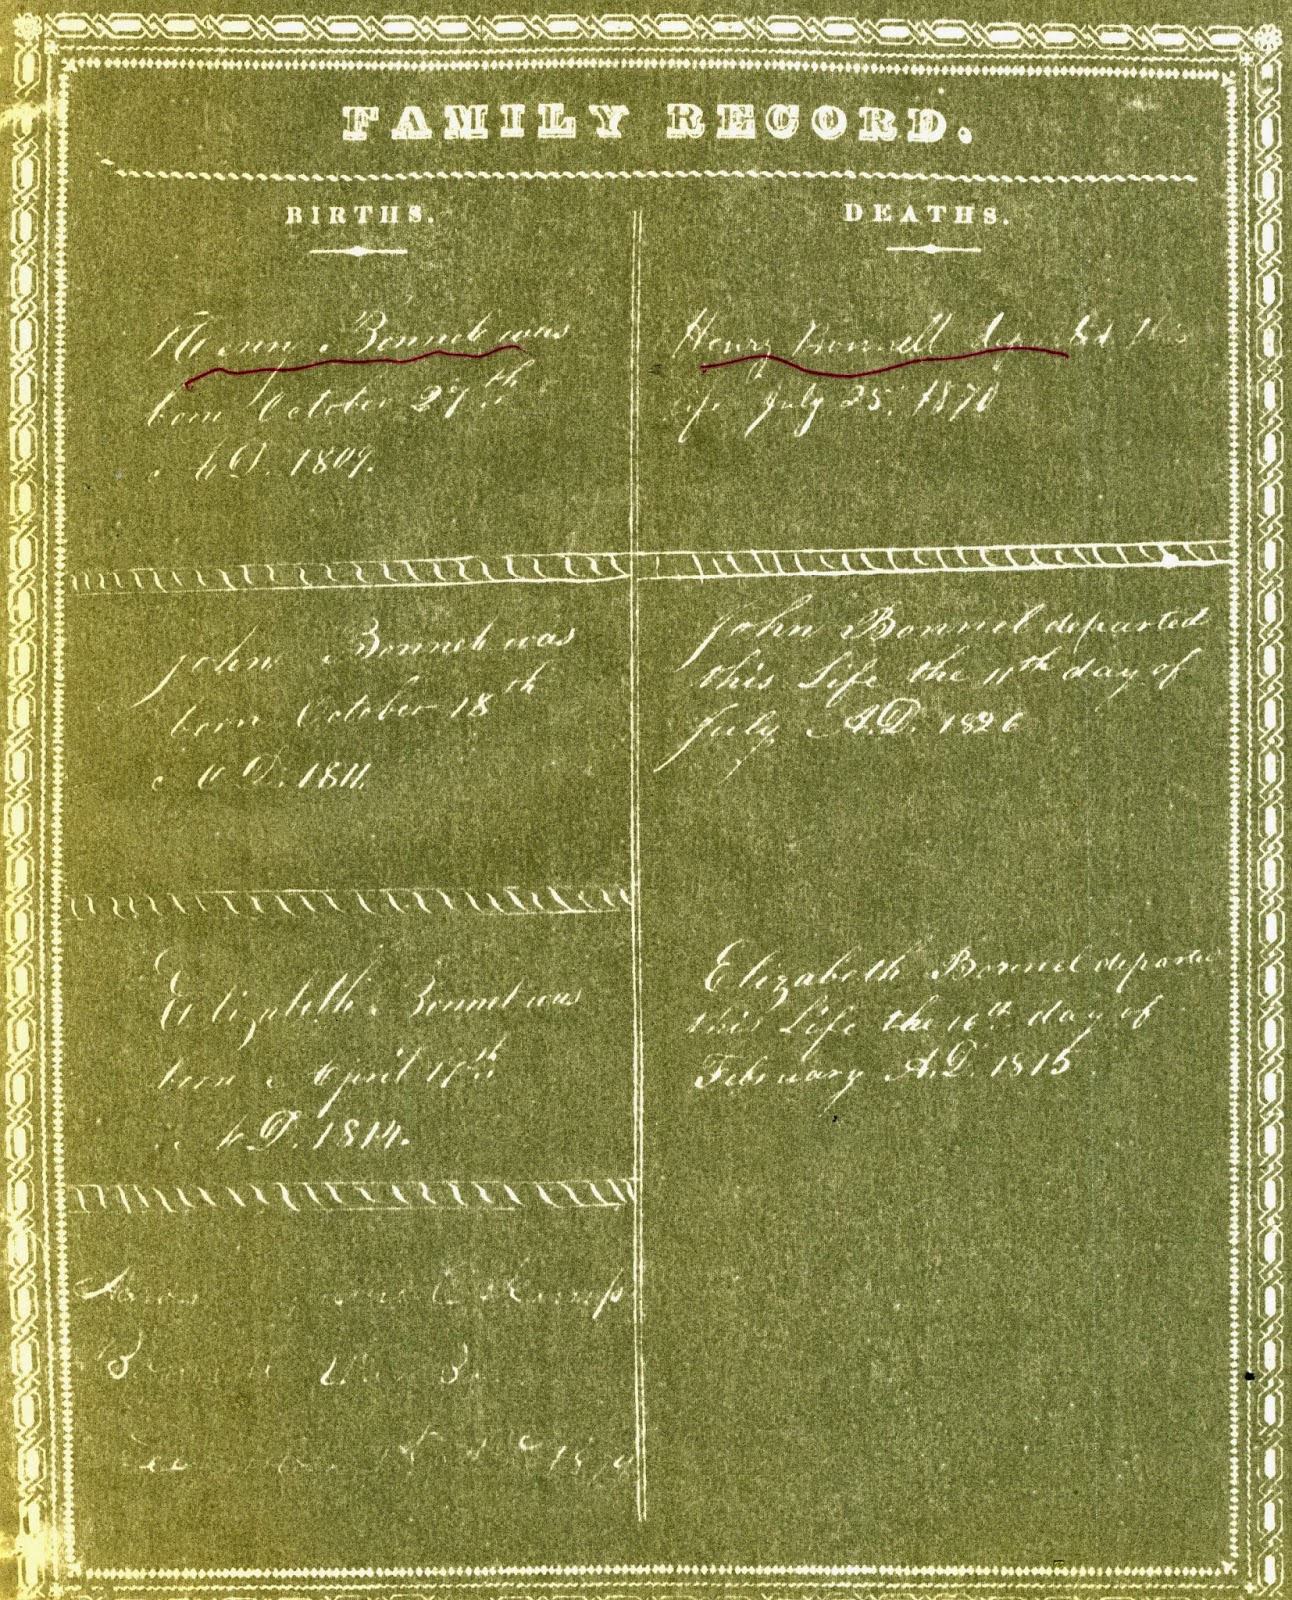 FAMILY RECORD.
BIRTHS.
Henry Bonnel was
born October 27th
A D. 1809.
John Bonnel was
born October 18th
A D. 1811.
Elizabeth Bonnel was
born April 17th
A D. 1814.
1st
DEATHS.
Henry Bonnell departed this
life July 25, 1870
John Bonnel departed
this Life the 11th day of
July A.D. 1826
Elizabeth Bonnel departed
this Life the 16th day of
February A.D. 1815